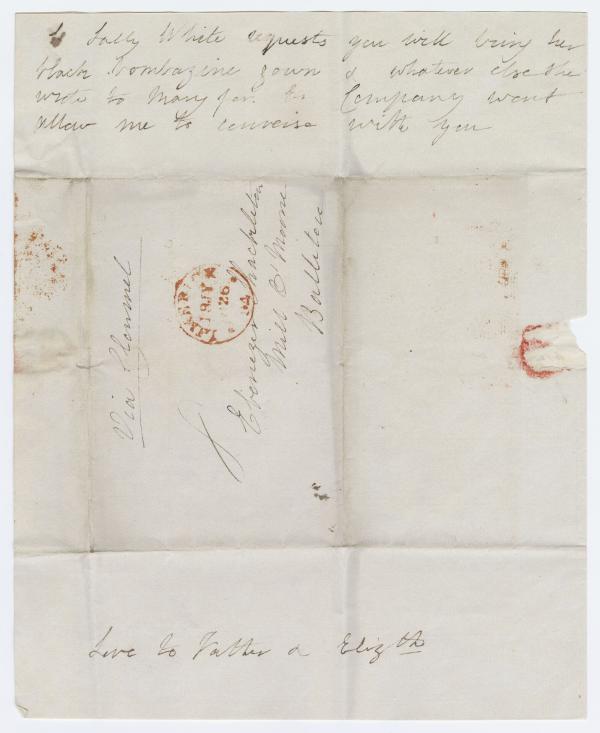 Sally White requests you will bring her
black bombazine gown & whatever else she
wrote to Mary for. Company wont
allow me to converse with you
Via Clonmel
Ebenezer Shackleton
Mill O' Moone
Ballitore
26
Love to Father & Elizth